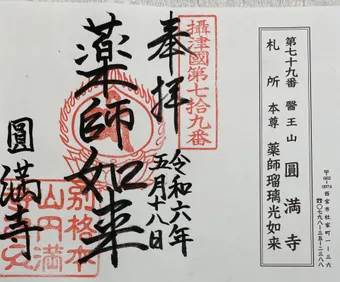 第七十九番 醫王山 圓満寺
札所 本尊 薬師瑠璃光如来
〒662-0974 西宮市社家町一―三六
攝津國第七拾九番
奉拝
令和六年
五月十八日
薬師如来
圓満寺
別格本
山円満